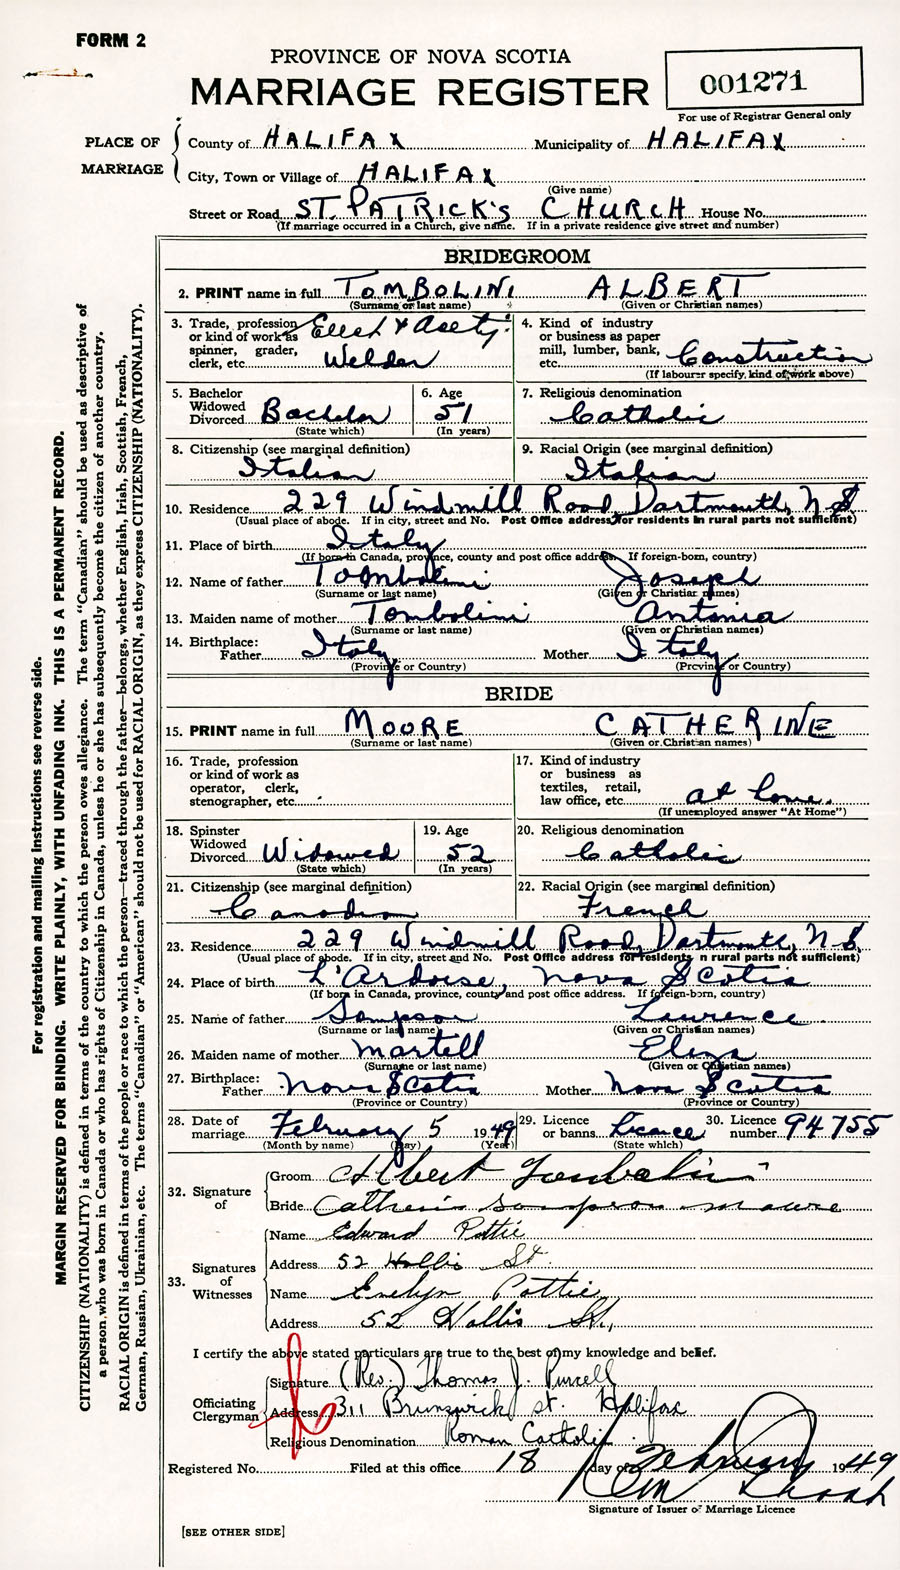 FORM 2
PROVINCE OF NOVA SCOTIA
MARRIAGE REGISTER
001271
For use of Registrar General only
PLACE OF MARRIAGE
County of HALIFAX Municipality of HALIFAX
City, Town or Village of HALIFAX
(Give name)
Street or Road ST. PATRICK'S CHURCH House No.
(If marriage occurred in a Church, give name. If in a private residence give street and number)
BRIDEGROOM
2. PRINT name in full TOMBOLINI ALBERT
(Surname or last name) (Given or Christian names)
3. Trade, profession or kind of work as spinner, grader, clerk, etc. Elect & Acety. Welder
4. Kind of industry or business as paper mill, lumber, bank, etc. Construction
(If labourer specify kind of work above)
5. Bachelor Widowed Divorced Bachelor
(State which)
6. Age 51
(In years)
7. Religious denomination
Catholic
8. Citizenship (see marginal definition)
Italian
9. Racial Origin (see marginal definition)
Italian
10. Residence 229 Windmill Road, Dartmouth, N.S.
(Usual place of abode. If in city, street and No. Post Office address for residents in rural parts not sufficient)
11. Place of birth Italy
(If born in Canada, province, county and post office address. If foreign-born, country)
12. Name of father Tombolini Joseph
(Surname or last name) (Given or Christian names)
13. Maiden name of mother Tombolini Antonia
(Surname or last name) (Given or Christian names)
14. Birthplace:
Father Italy Mother Italy
(Province or Country) (Province or Country)
BRIDE
15. PRINT name in full MOORE CATHERINE
(Surname or last name) (Given or Christian names)
16. Trade, profession or kind of work as operator, clerk, stenographer, etc.
17. Kind of industry or business as textiles, retail, law office, etc. at home.
(If unemployed answer "At Home")
18. Spinster Widowed Divorced Widowed
(State which)
19. Age 52
(In years)
20. Religious denomination
Catholic
21. Citizenship (see marginal definition)
Canadian
22. Racial Origin (see marginal definition)
French
23. Residence 229 Windmill Road, Dartmouth, N.S.
(Usual place of abode. If in city, street and No. Post Office address for residents in rural parts not sufficient)
24. Place of birth L'Ardoise, Nova Scotia
(If born in Canada, province, county and post office address. If foreign-born, country)
25. Name of father Sampson Lawrence
(Surname or last name) (Given or Christian names)
26. Maiden name of mother Martell Eliza
(Surname or last name) (Given or Christian names)
27. Birthplace:
Father Nova Scotia Mother Nova Scotia
(Province or Country) (Province or Country)
28. Date of marriage February 5 1949
(Month by name) (Day) (Year)
29. Licence or banns Licence
(State which)
30. Licence number 94755
32. Signature of
Groom Albert Tombolini
Bride Catherin Sampson Moore
33. Signatures of Witnesses
Name Edward Pottie
Address 52 Hollis St.
Name Evelyn Pottie
Address 52 Hollis St.,
I certify the above stated particulars are true to the best of my knowledge and belief.
Officiating Clergyman
Signature (Rev.) Thomas J. Purcell
Address 311 Brunswick st. Halifax
Religious Denomination Roman Catholic.
Registered No. Filed at this office 18 day of February 1949
Signature of Issuer of Marriage Licence
[SEE OTHER SIDE]
For registration and mailing instructions see reverse side.
MARGIN RESERVED FOR BINDING. WRITE PLAINLY, WITH UNFADING INK. THIS IS A PERMANENT RECORD.
CITIZENSHIP (NATIONALITY) is defined in terms of the country to which the person owes allegiance. The term "Canadian" should be used as descriptive of
a person who was born in Canada or who has rights of Citizenship in Canada, unless he or she has subsequently become the citizen of another country.
RACIAL ORIGIN is defined in terms of the people or race to which the person—traced through the father—belongs, whether English, Irish, Scottish, French,
German, Russian, Ukrainian, etc. The terms "Canadian" or "American" should not be used for RACIAL ORIGIN, as they express CITIZENSHIP (NATIONALITY).